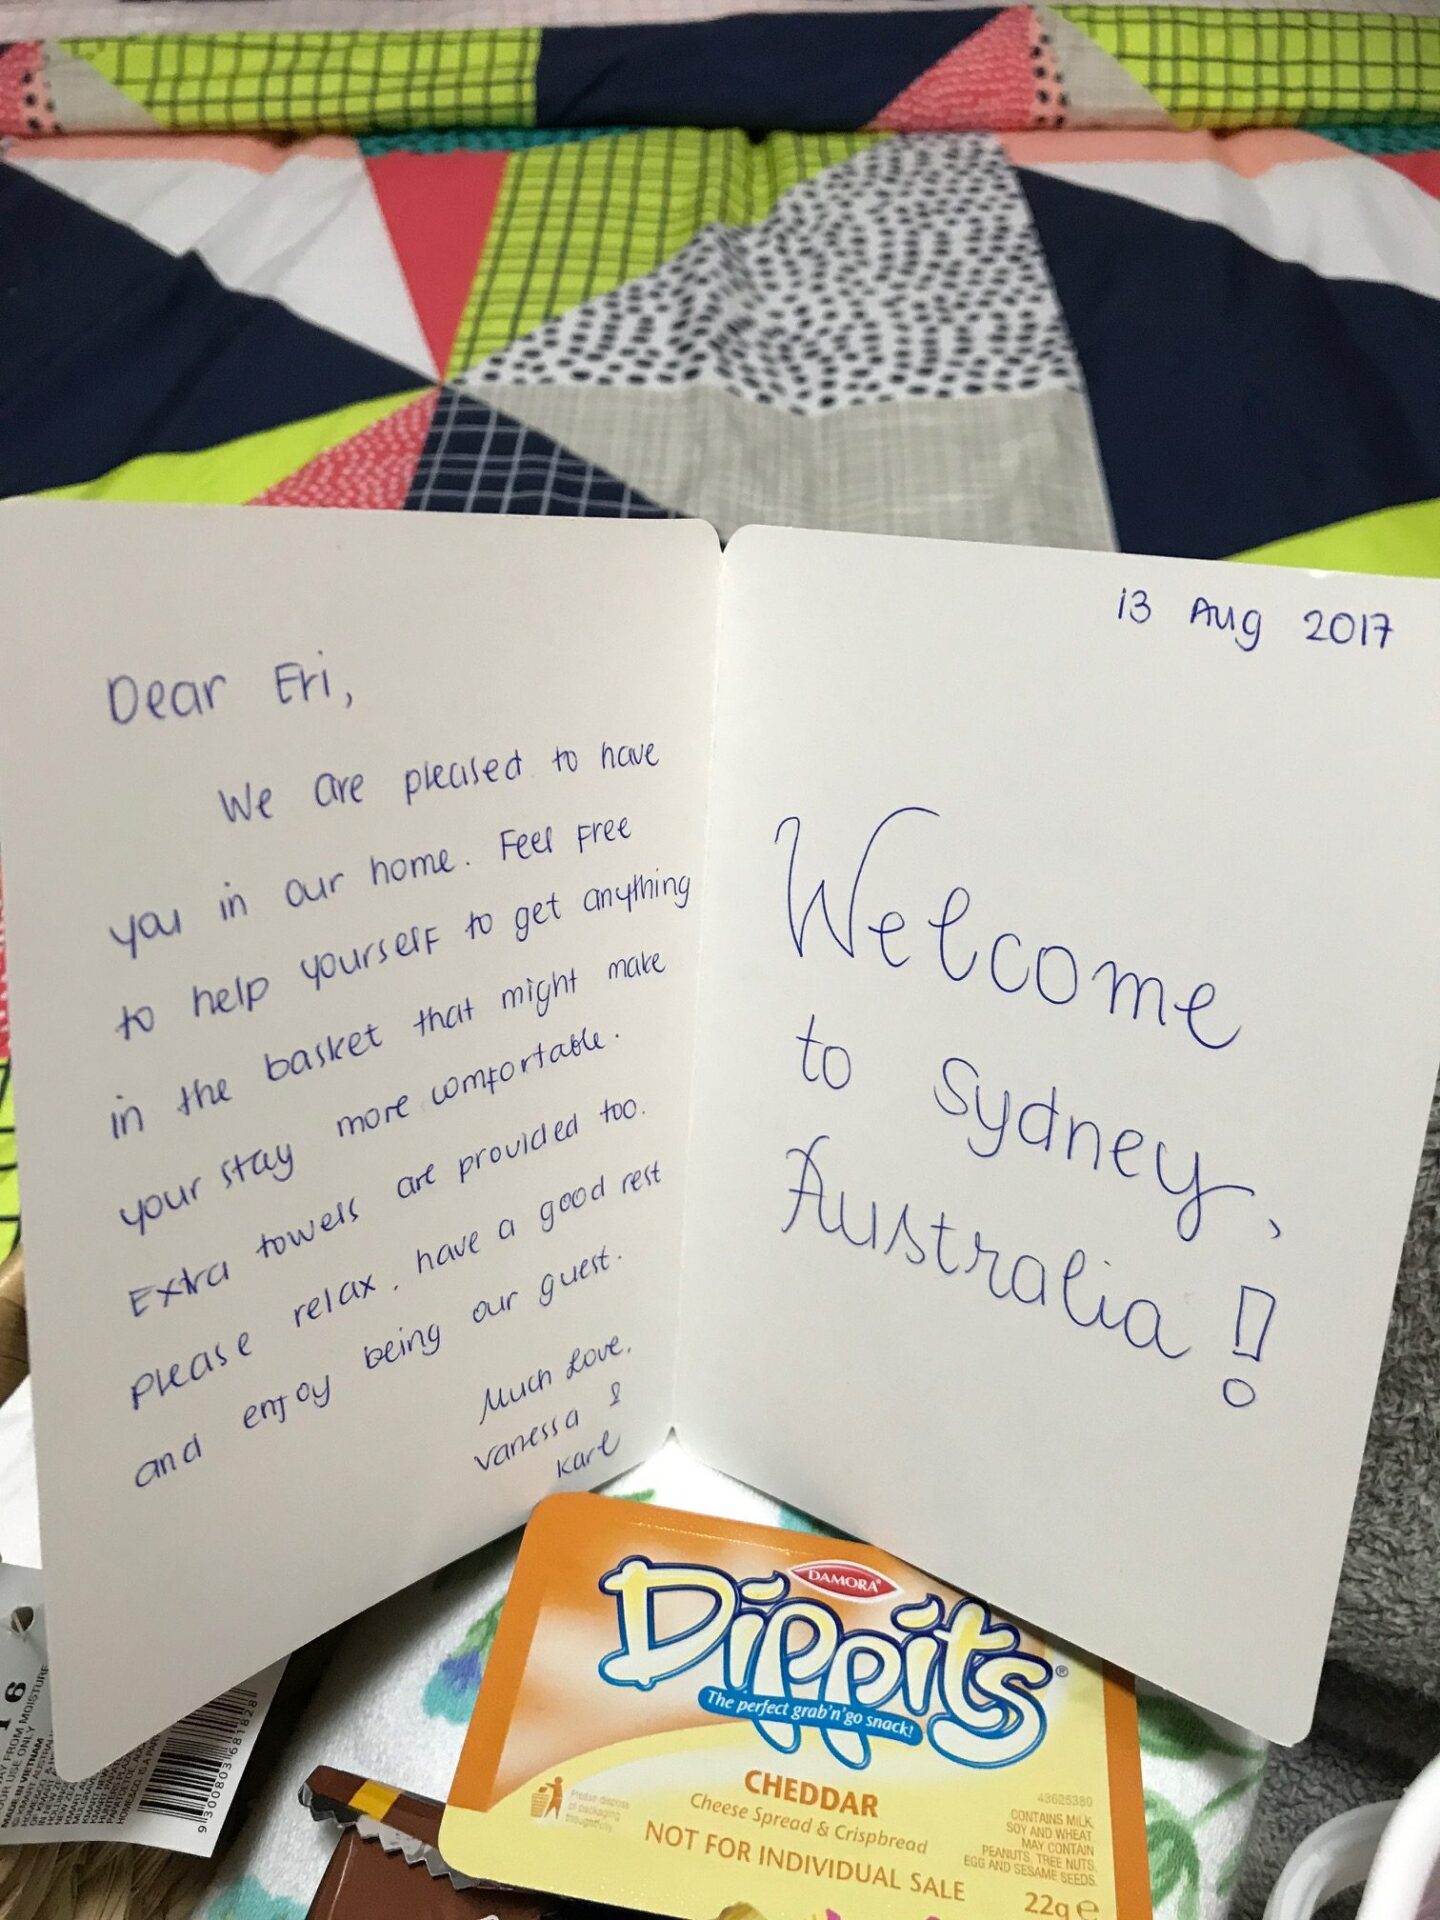 Dear Eri,
We are pleased to have
you in our home. Feel Free
to help yourself to get anything
in the basket that might make
your stay more comfortable.
Extra towels are provided too.
please relax, have a good rest
and enjoy being our guest.
Much Love,
Vanessa &
Karl
13 Aug 2017
Welcome
to Sydney,
Australia!
DAMORA®
Dippits®
The perfect grab'n'go snack!
CHEDDAR
Cheese Spread & Crispbread
NOT FOR INDIVIDUAL SALE
Please dispose
of packaging
thoughtfully.
43625380
CONTAINS MILK,
SOY AND WHEAT.
MAY CONTAIN
PEANUTS, TREE NUTS,
EGG AND SESAME SEEDS.
22g e
FROM MOISTURE
USE ONLY
MADE IN VIETNAM
9 300803 681828